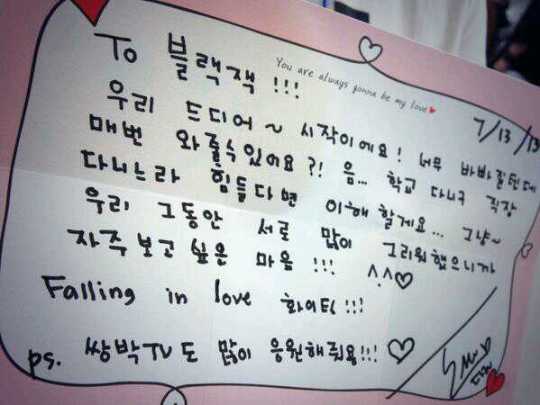 To 블랙잭 !!!
You are always gonna be my love
7/13/13
우리 드디어~ 시작이에요! 너무 바빠질텐데
매번 와줄수있어요?! 음... 학교 다니구 직장
다니느라 힘들다면 이해 할게요... 그냥~
우리 그동안 서로 많이 그리워했으니까
자주보고싶은 마음 !!! ^.^♡
Falling in love 화이팅!!!
ps. 쌍박TV도 많이 응원해줘요!!! ♡